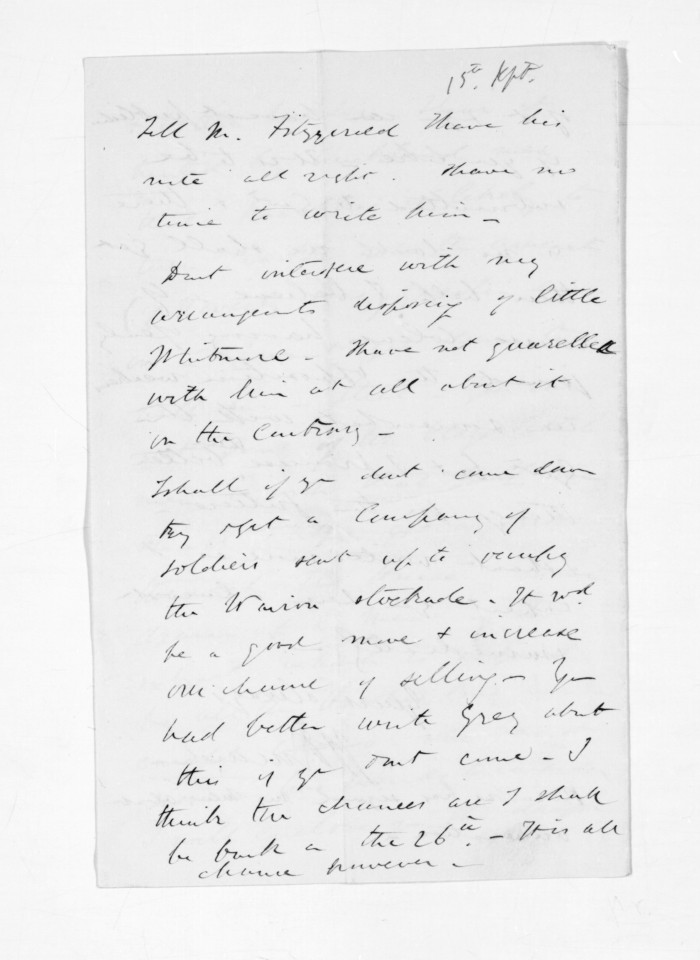 15th. Sept.
Tell Mr. Fitzgerald I have his
note all right. I have no
time to write him -
Dont interfere with my
arrangements disposing of little
Whitmore - I have not quarelled
with him at all about it
on the Contrary -
I shall if ye dont come down
try & get a Company of
soldiers sent up to occupy
the Wairoa stockade - It wd.
be a good move & increase
our chance of selling - Ye
had better write Grey about
this if ye dont come - I
think the chances are I shall
be back on the 26th. - It is all
chance however -